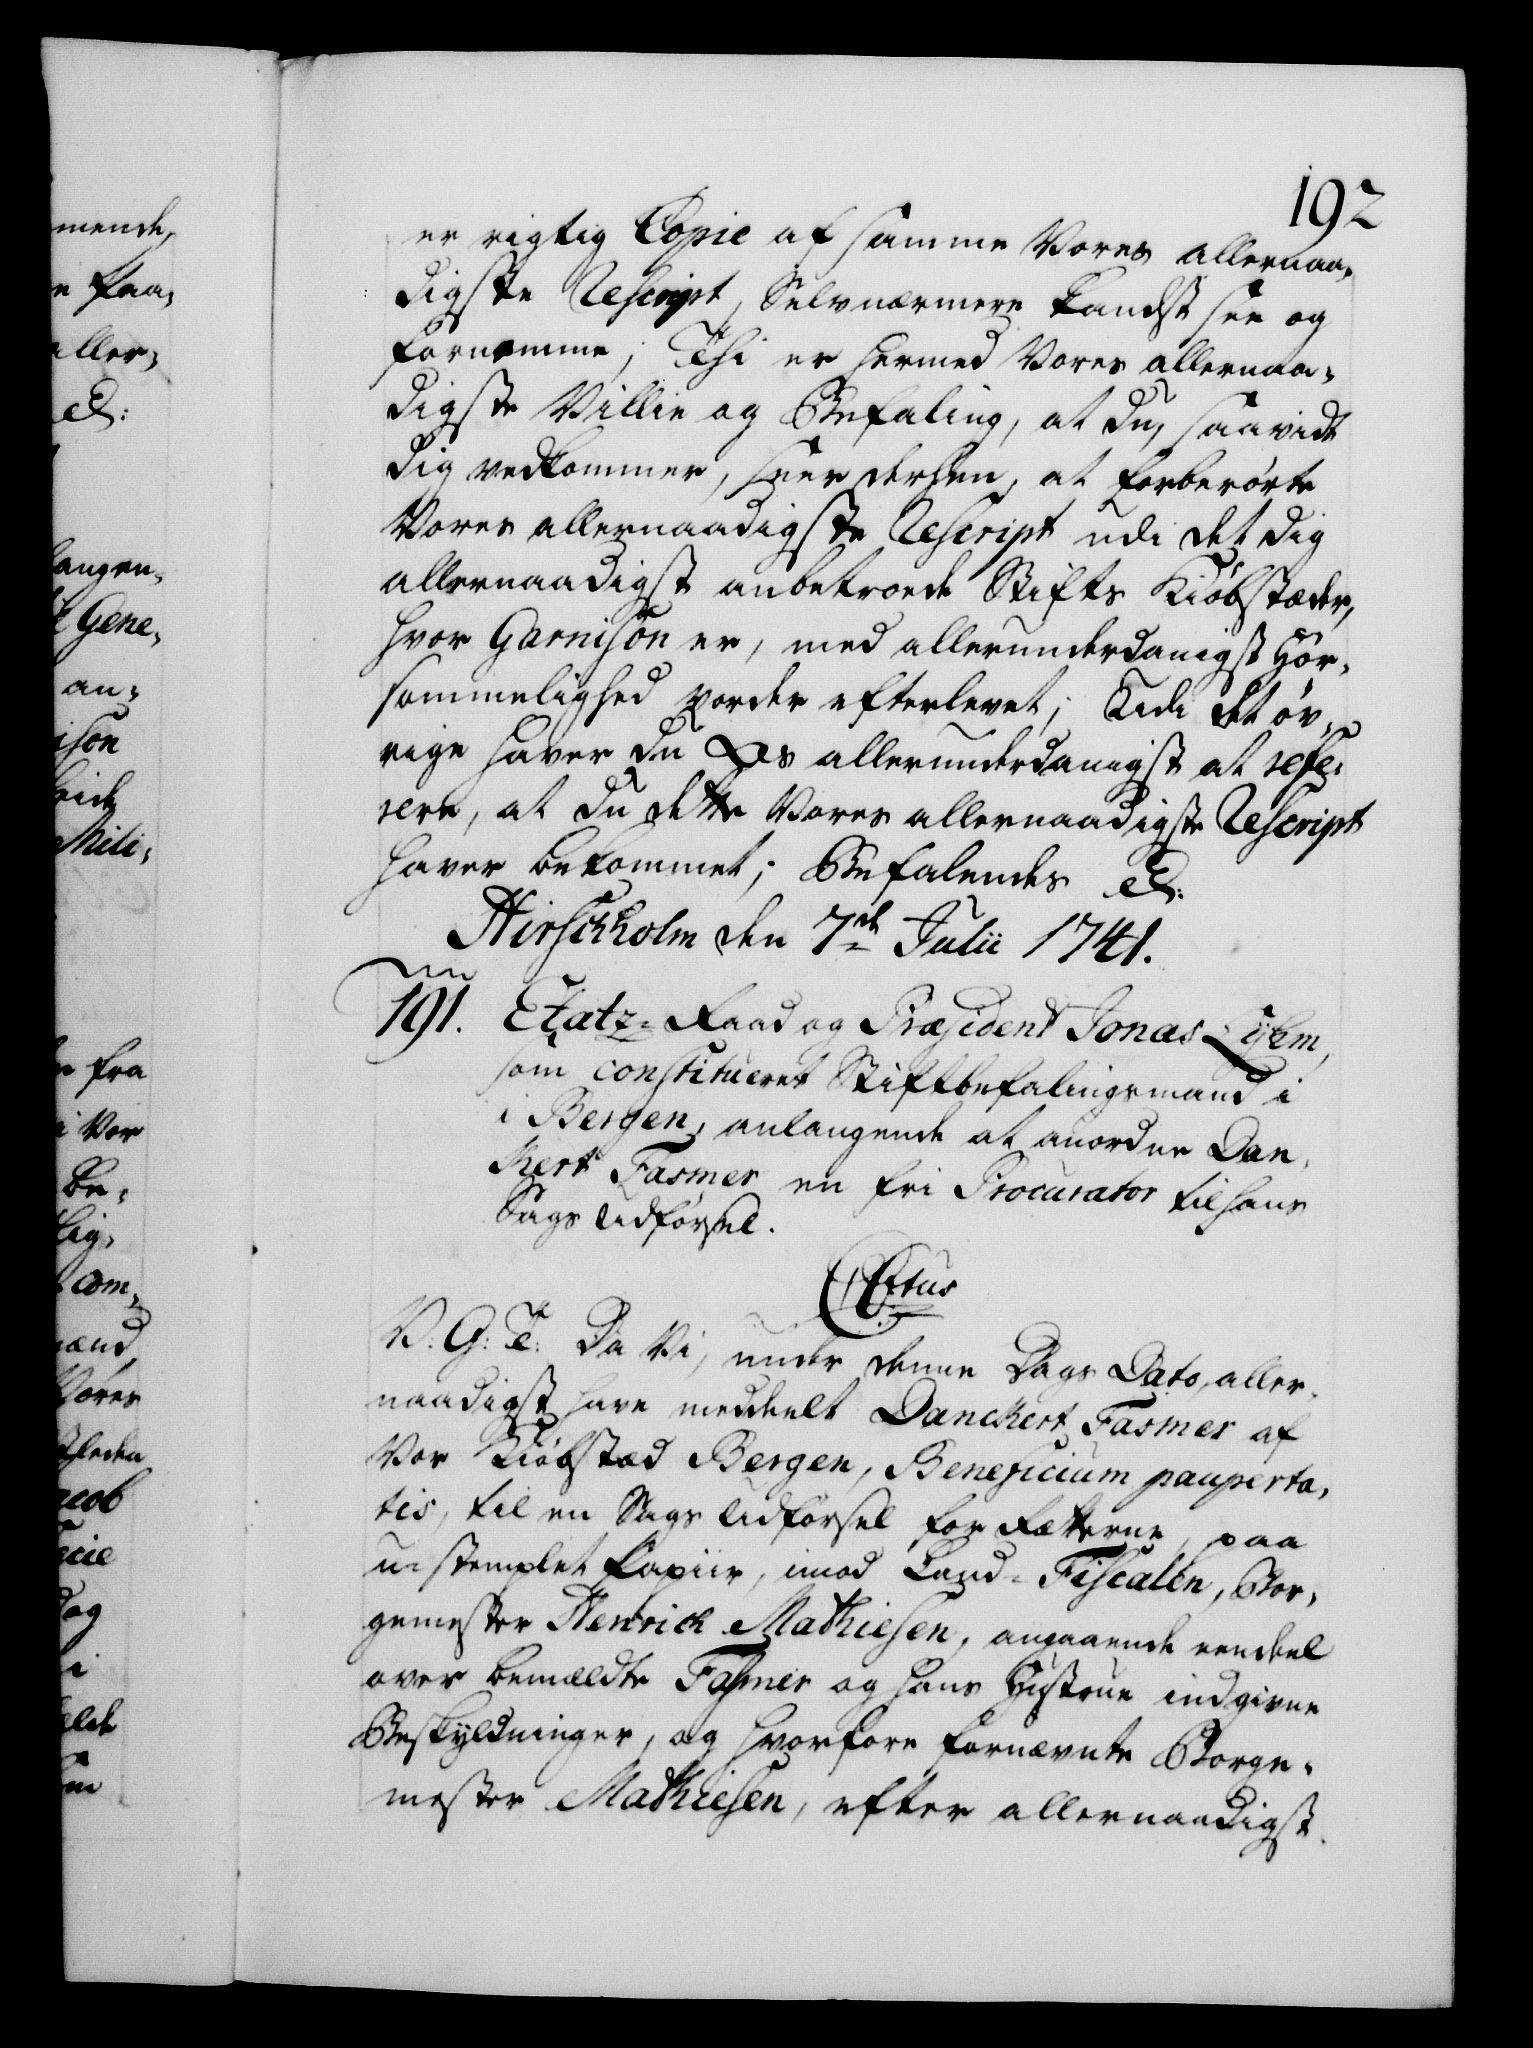 192
er rigtig Copie af samme Vores allernaa-
digste Rescript, Selv nærmere kandst see og
fornemme; Thi er hermed Vores allernaa-
digste Villie og Befaling, at du, saavidt
dig vedkommer, seer derhen, at forberørte
Vores allernaadigste Rescript udi det dig
allernaadigst anbetroede Stifts Kiøbstæder,
hvor Garnison er, med allerunderdanigst Hør-
sommelighed vorder efterlevet; Udi det øv-
rige haver du Os allerunderdanigst at refe-
rere, at du dette Vores allernaadigste Rescript
haver bekommet; Befalendes &:
Hirschholm den 7de Julii 1741.
191. Etatz-Raad og Præsident Jonas Lyhm,
som constitueret Stiftbefalingsmand i
i Bergen, anlangende at anordne Dan-
kert Fasmer en fri Procurator til hans
Sags Udførsel.
C6tus
V: G: T: Da Vi, under denne Dags Dato, aller-
naadigst have meddeelt Danckert Fasmer af
Vor Kiøbstæd Bergen, Beneficium pauperta-
tis, til en Sags Udførsel for Rætterne, paa
u-stemplet Papiir, imod Land-Fiscalen, Bor-
gemester Henrich Mathiesen, angaaende eendeel
over bemældte Fasmer og hans Hustrue indgivne
Beskyldninger, og hvorfore fornævnte Borge-
mester Mathiesen, efter allernaadigst
mende,
n Paa-
aller-
&:
langen-
Gene-
an-
ison
Mili-
fra
i Vor
Be-
lig-
com-
mænd
Vores
acob
ecie
dog
i